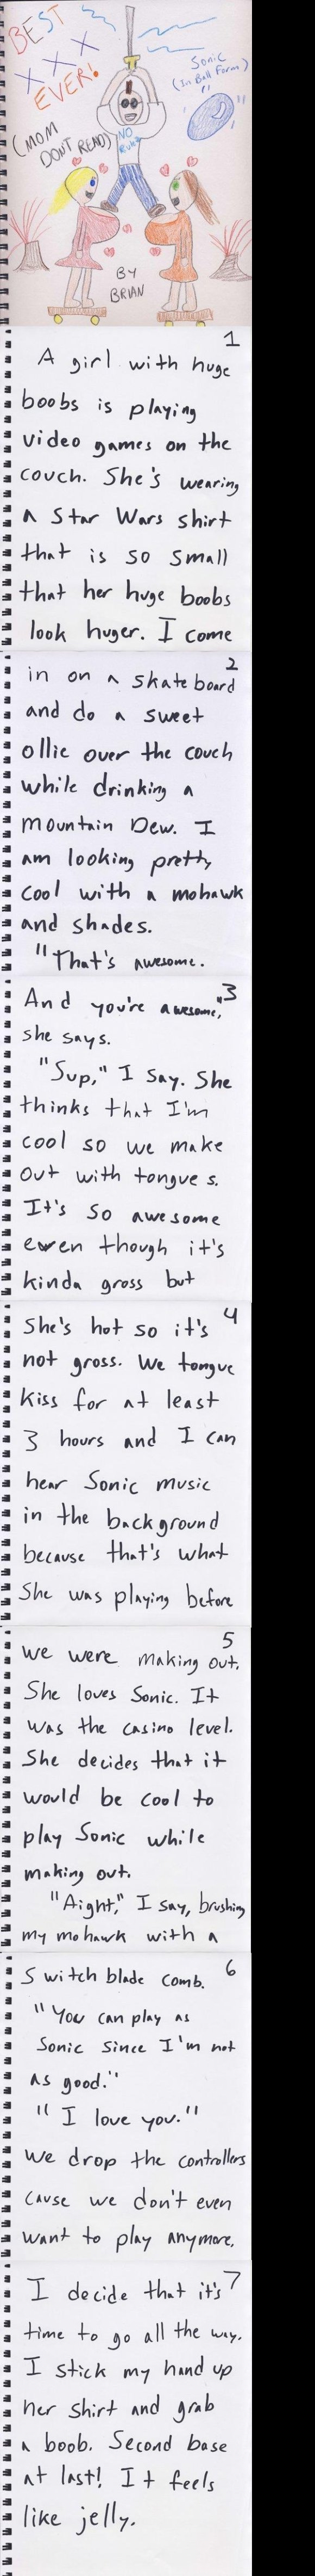 BEST
XXX
EVER!
(MOM
DONT READ)
Sonic
(In Ball Form)
NO
Rules
BY
BRIAN
1
A girl with huge
boobs is playing
video games on the
couch. She's wearing
a Star Wars shirt
that is so small
that her huge boobs
look huger. I come
2
in on a skateboard
and do a sweet
ollie over the couch
while drinking a
Mountain Dew. I
am looking pretty
cool with a mohawk
and shades.
"That's awesome.
3
And you're awesome,"
she says.
"Sup," I say. She
thinks that I'm
cool so we make
out with tongues.
It's so awesome
even though it's
kinda gross but
4
she's hot so it's
not gross. We tongue
kiss for at least
3 hours and I can
hear Sonic music
in the background
because that's what
she was playing before
5
we were making out.
She loves Sonic. It
was the casino level.
She decides that it
would be cool to
play Sonic while
making out.
"Aight," I say, brushing
my mohawk with a
6
switch blade comb.
"You can play as
Sonic since I'm not
as good."
"I love you."
We drop the controllers
cause we don't even
want to play anymore.
7
I decide that it's
time to go all the way.
I stick my hand up
her shirt and grab
a boob. Second base
at last! It feels
like jelly.